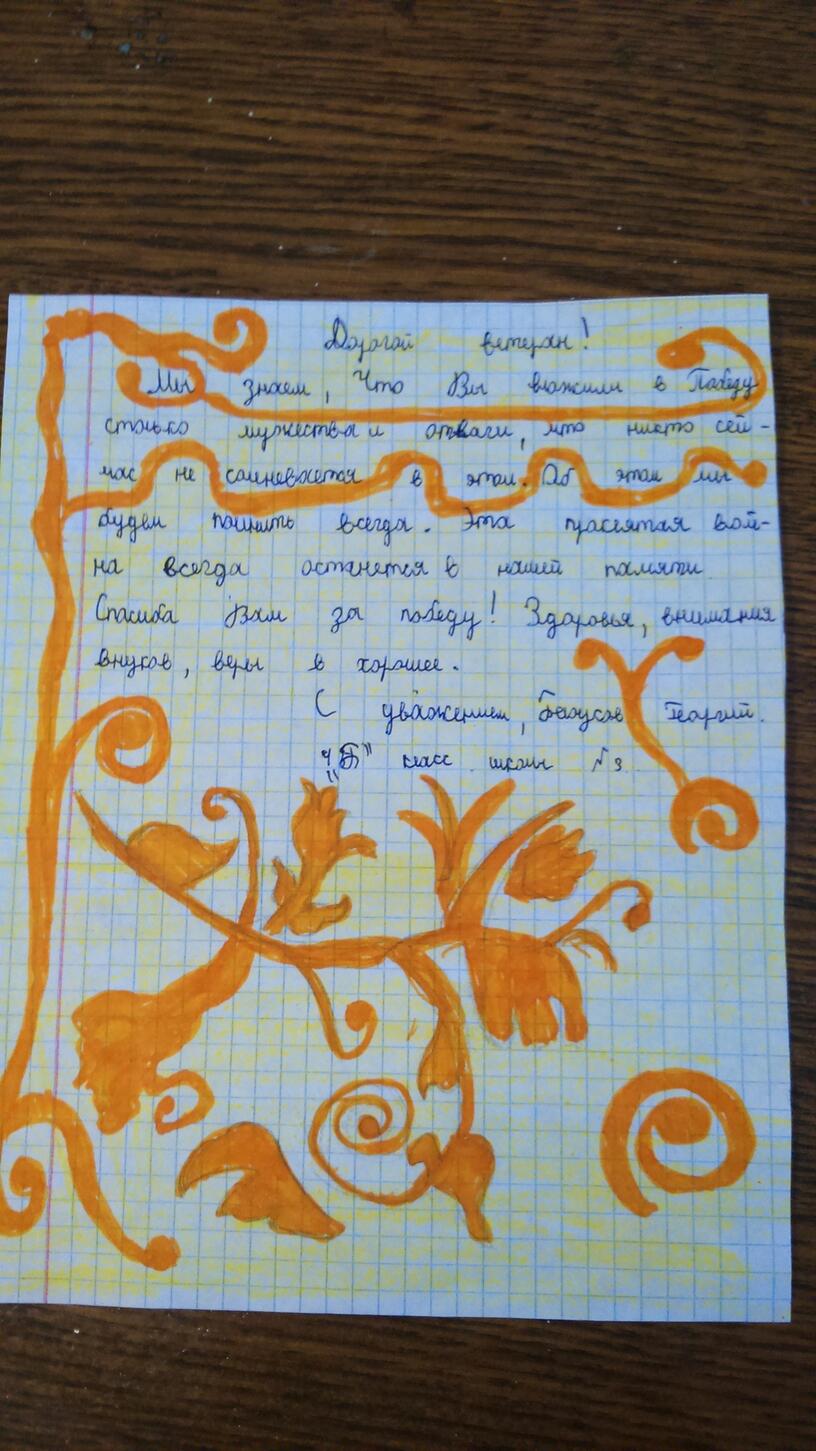 Дорогой ветеран!
Мы знаем, Что Вы вложили в Победу
столько мужества и отваги, что никто сей-
час не сомневается в этом. Об этом мы
будем помнить всегда. Эта проклятая вой-
на всегда останется в нашей памяти
Спасиба Вам за победу! Здоровья, внимания
внуков, веры в хорошее.
С уважением, Георгий.
"Б" класс школы №3